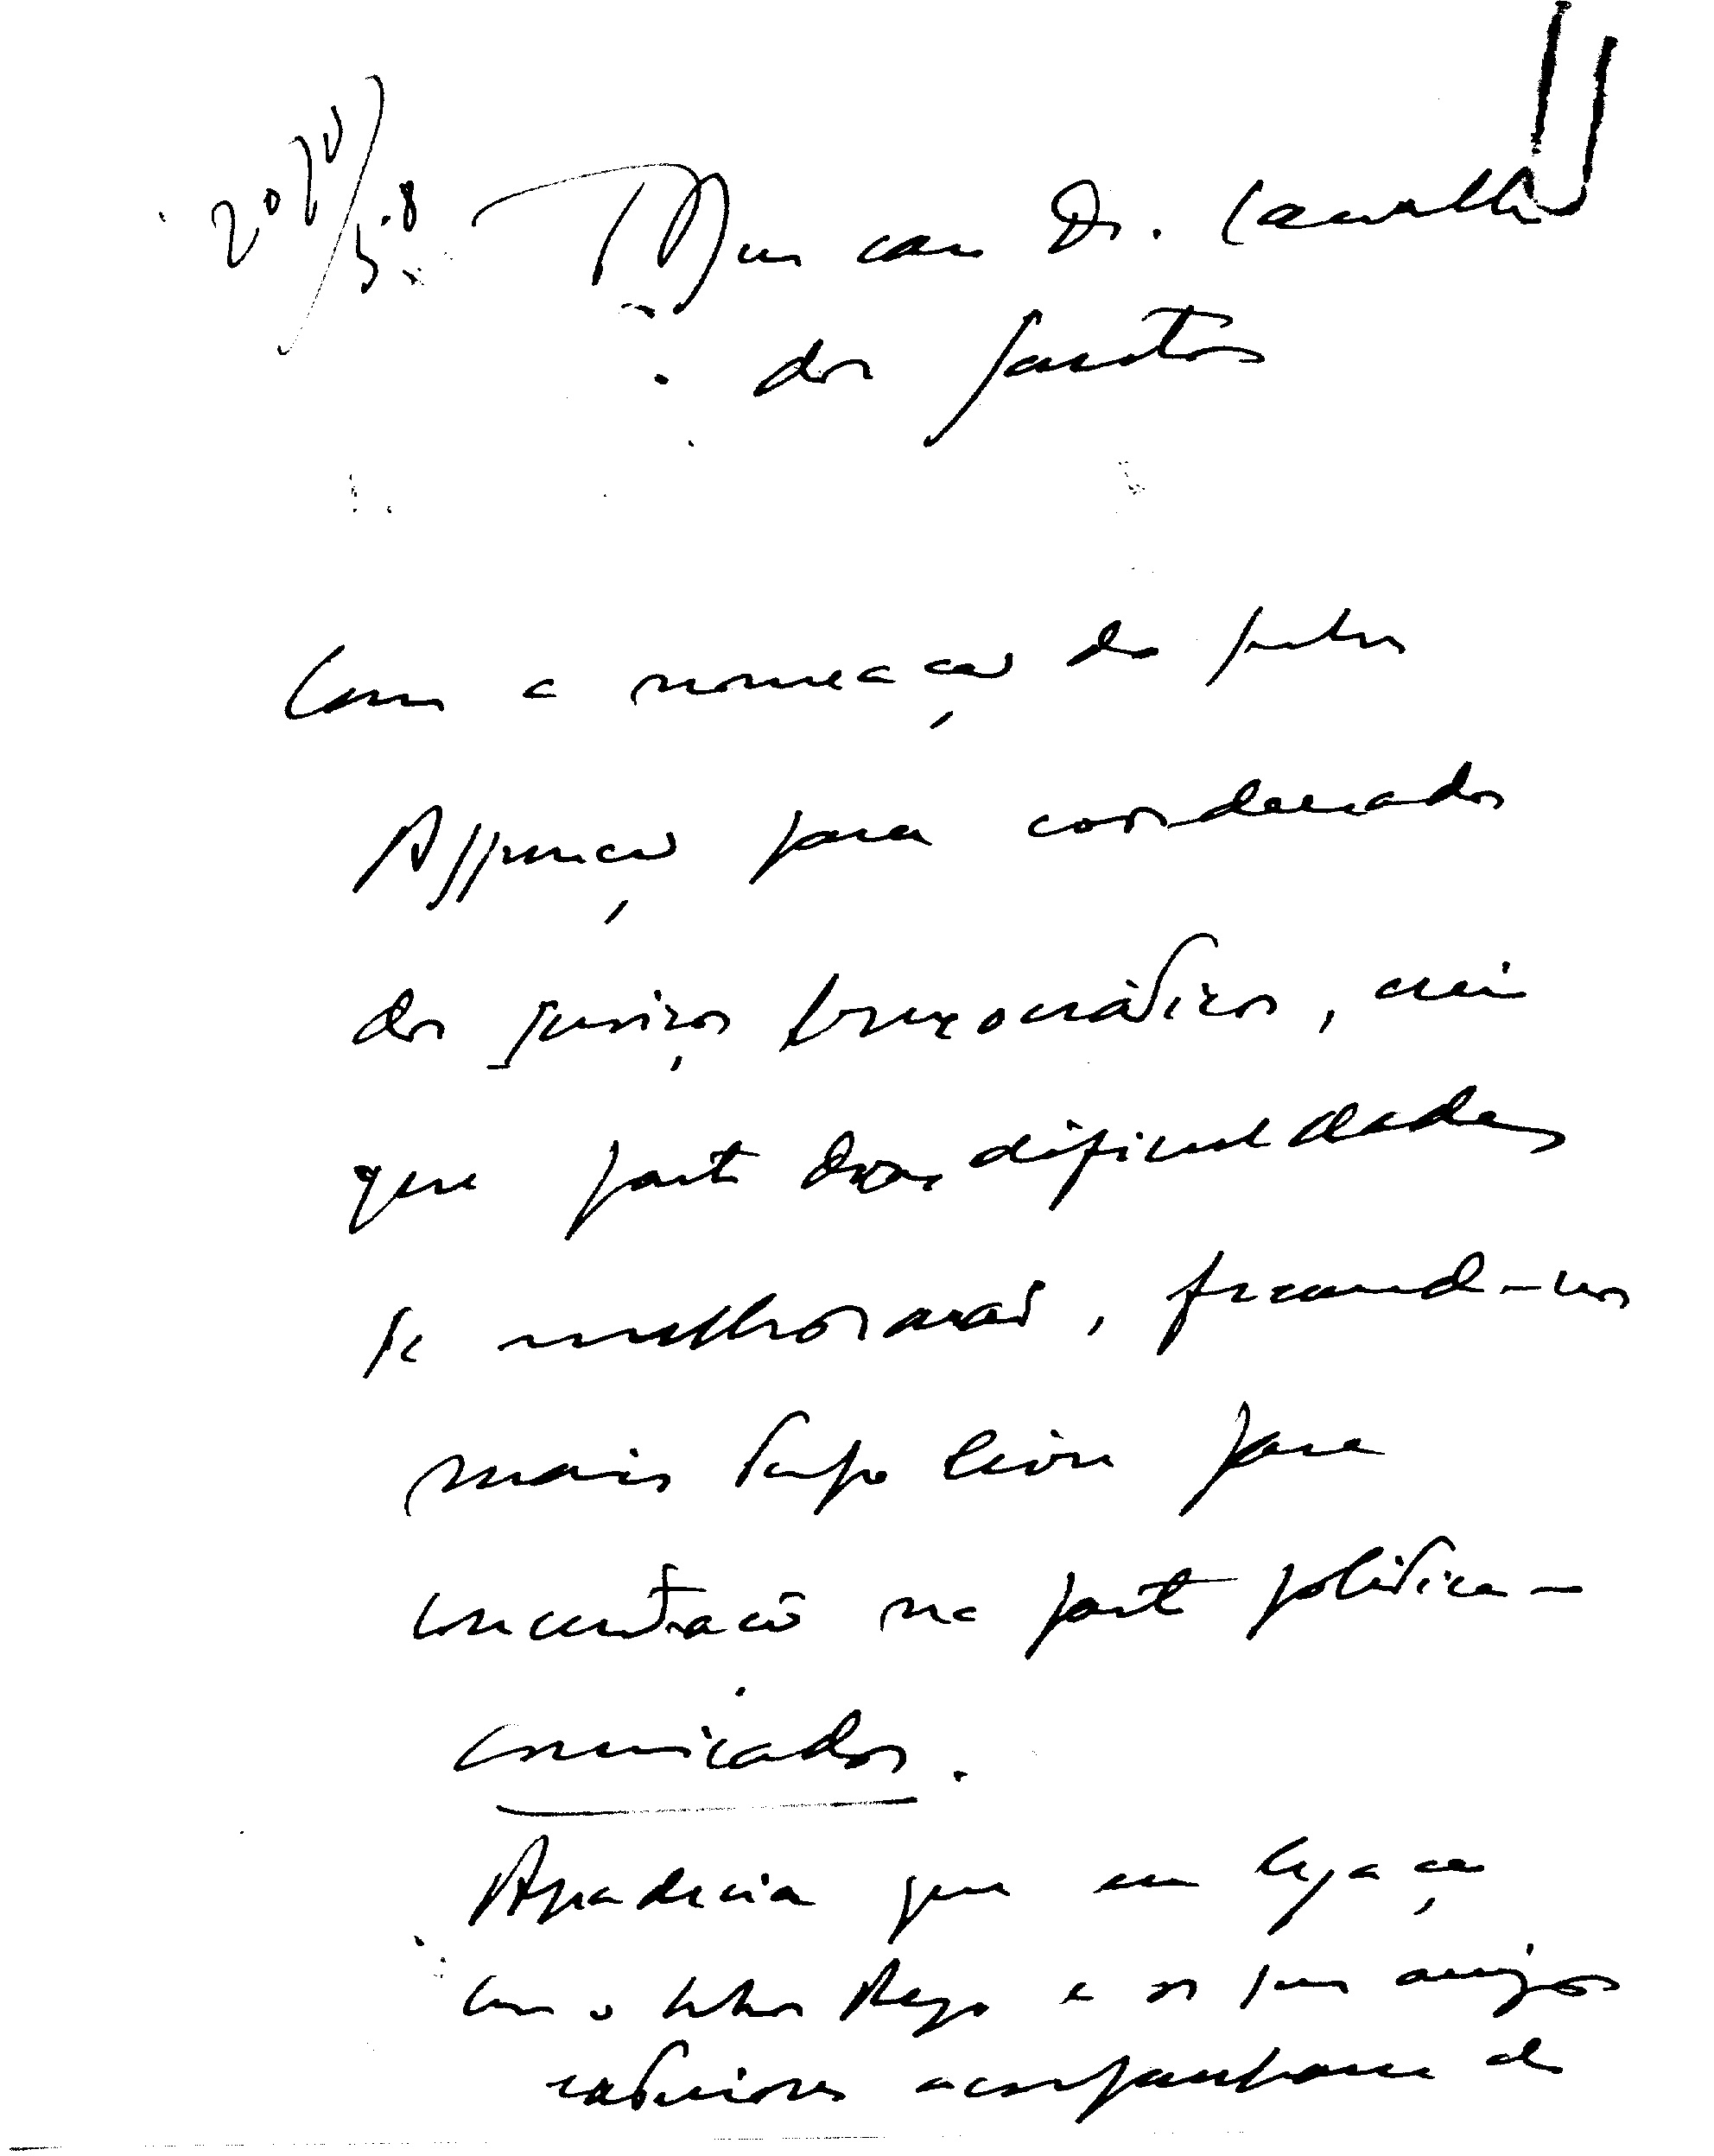 Meu caro Dr. Carvalho
dos Santos
Com a nomeação do
Assunção para coordenador
dos serviços burocráticos, creio
que parte das dificuldades
se melhorarão, ficando-nos
mais tempo livre para
concentração na parte política -
comunicados.
Agradecia que em ligação
com o Rego e os seus amigos
acompanhasse de